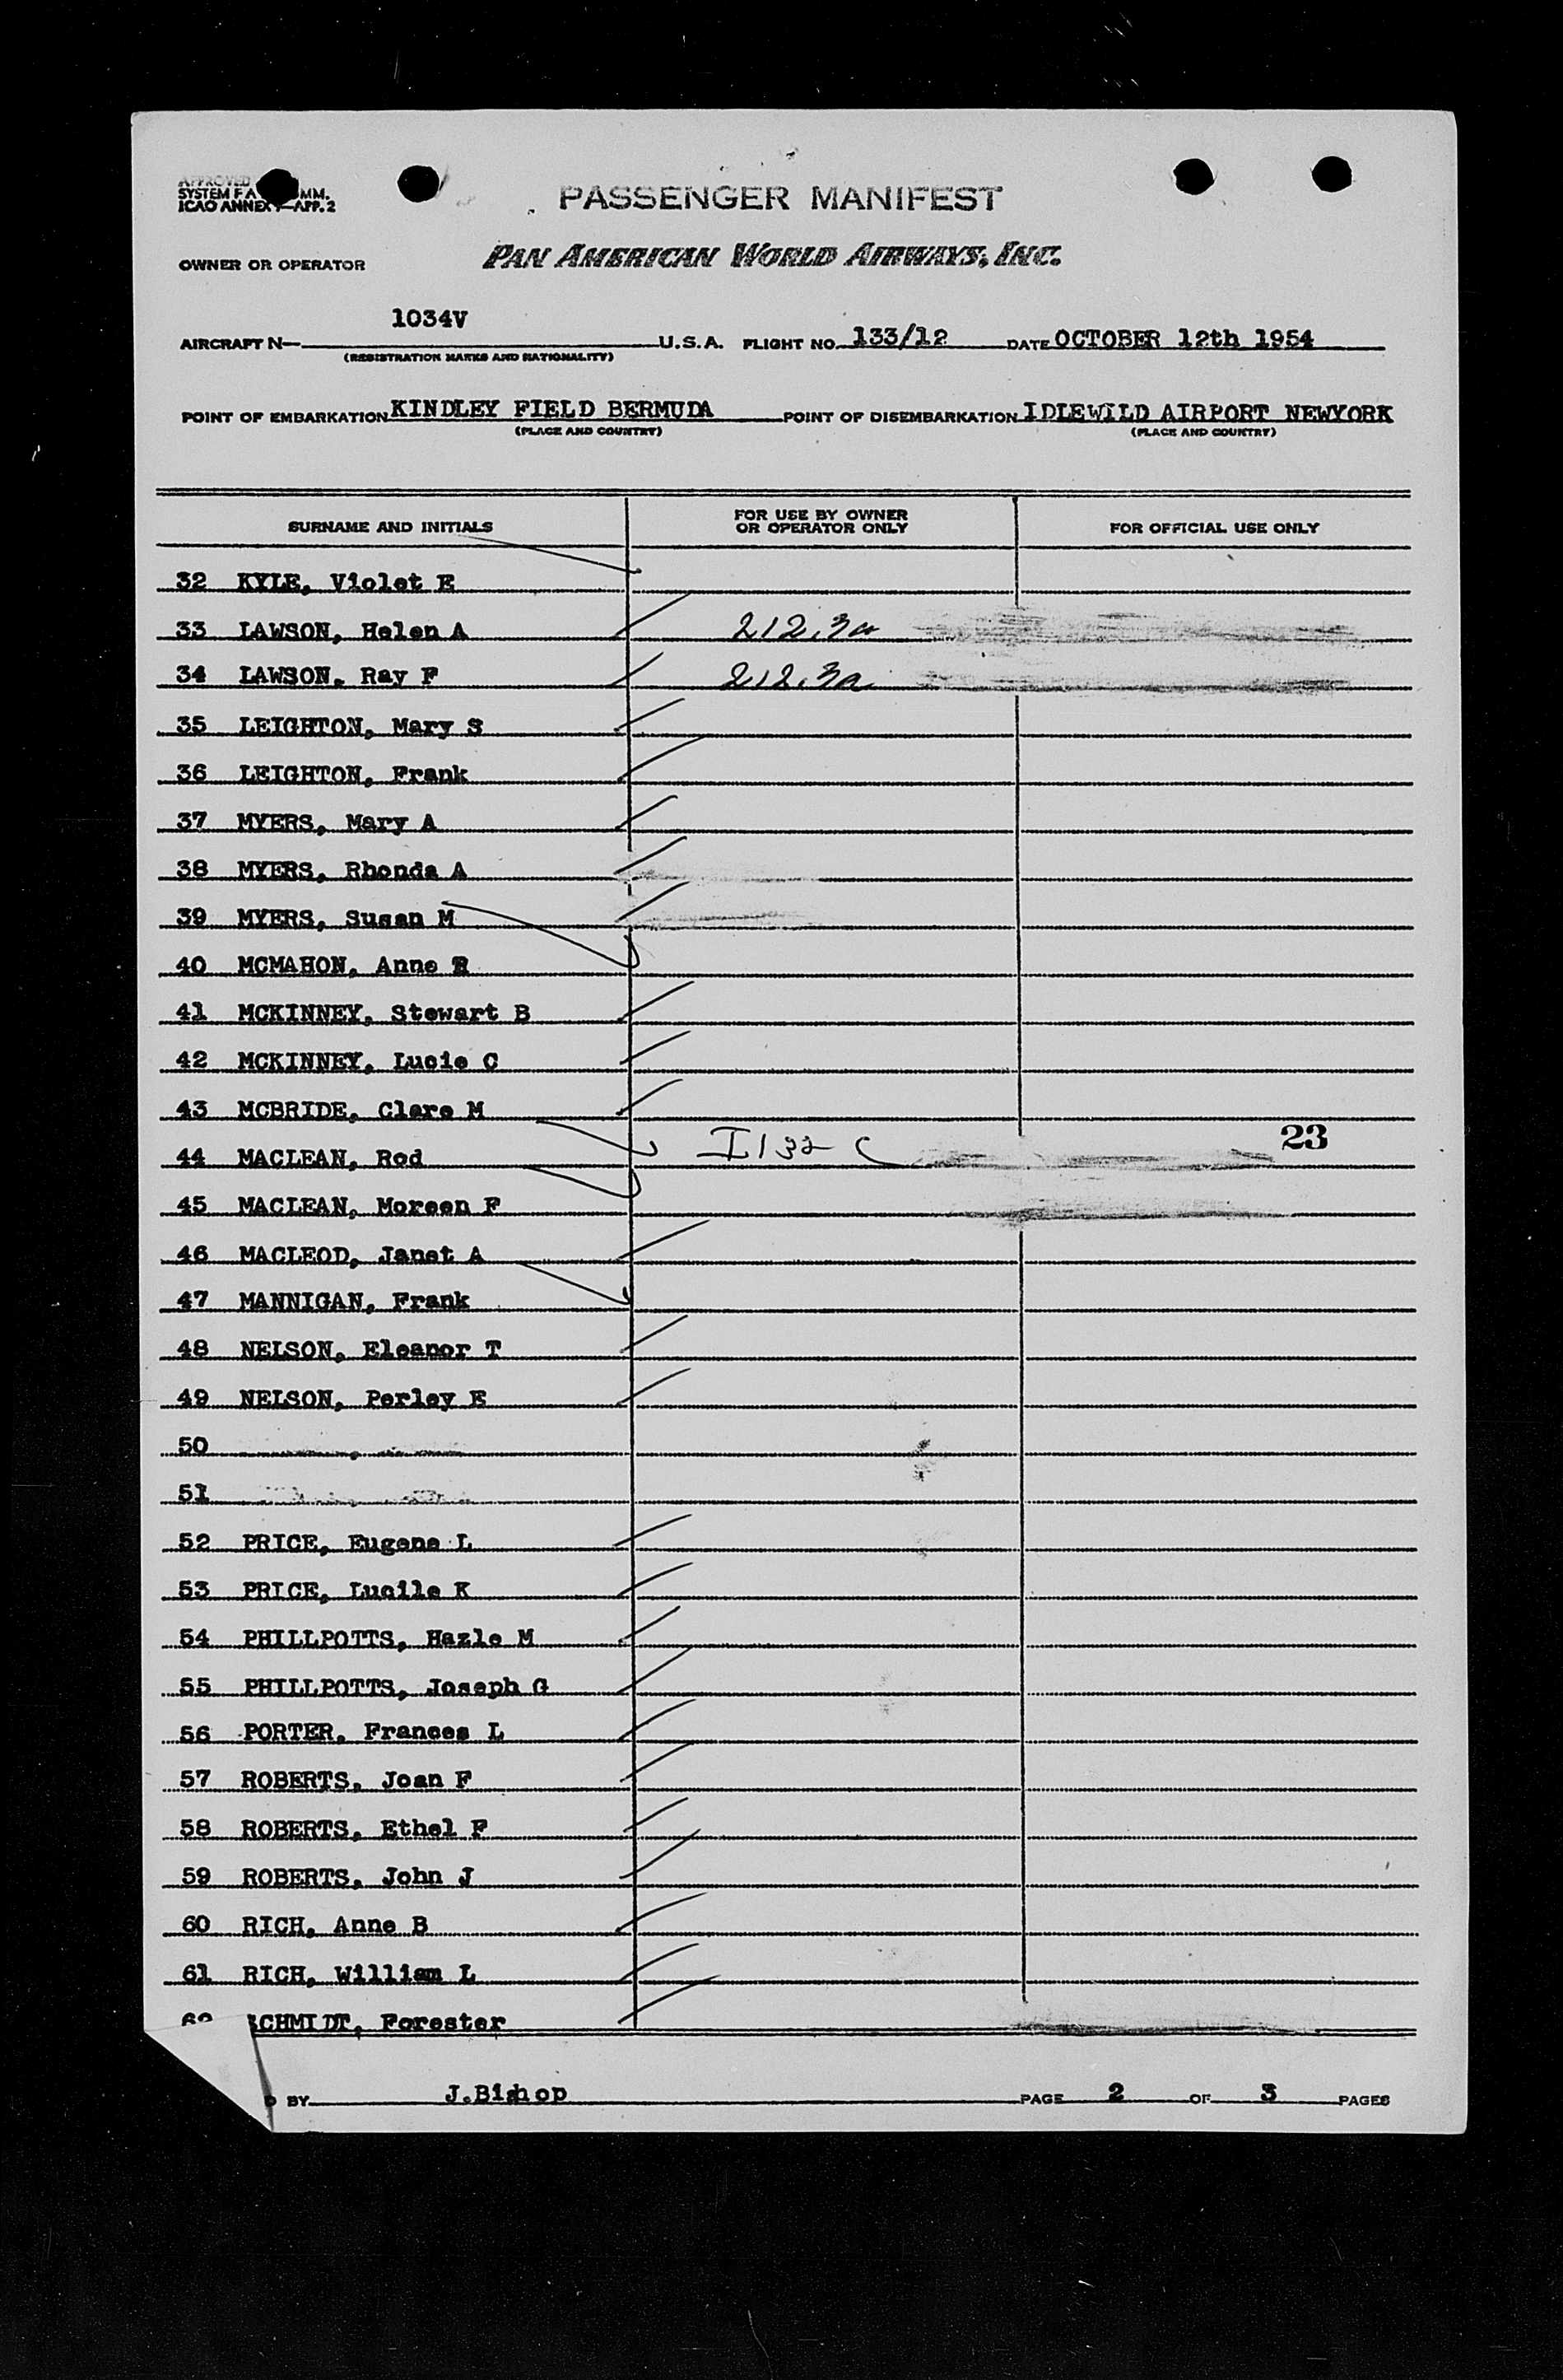 APPROVED
SYSTEM F A MM.
ICAO ANNEX —APP. 2
PASSENGER MANIFEST
OWNER OR OPERATOR PAN AMERICAN WORLD AIRWAYS, INC.
1034V
AIRCRAFT N— U.S.A. FLIGHT NO. 133/12 DATE OCTOBER 12th 1954
(REGISTRATION MARKS AND NATIONALITY)
POINT OF EMBARKATION KINDLEY FIELD BERMUDA POINT OF DISEMBARKATION IDLEWILD AIRPORT NEWYORK
(PLACE AND COUNTRY) (PLACE AND COUNTRY)
SURNAME AND INITIALS FOR USE BY OWNER OR OPERATOR ONLY FOR OFFICIAL USE ONLY
32 KYLE, Violet E
33 LAWSON, Helen A 212.3a
34 LAWSON, Ray F 212.3a
35 LEIGHTON, Mary S
36 LEIGHTON, Frank
37 MYERS, Mary A
38 MYERS, Rhonda A
39 MYERS, Susan M
40 MCMAHON, Anne R
41 MCKINNEY, Stewart B
42 MCKINNEY, Lucie C
43 MCBRIDE, Clare M
44 MACLEAN, Rod I132 C 23
45 MACLEAN, Moreen F
46 MACLEOD, Janet A
47 MANNIGAN, Frank
48 NELSON, Eleanor T
49 NELSON, Perley E
50
51
52 PRICE, Eugene L
53 PRICE, Lucile K
54 PHILLPOTTS, Hazle M
55 PHILLPOTTS, Joseph G
56 PORTER, Frances L
57 ROBERTS, Joan F
58 ROBERTS, Ethel F
59 ROBERTS, John J
60 RICH, Anne B
61 RICH, William L
62 SCHMIDT, Forester
D BY J.Bishop PAGE 2 OF 3 PAGES